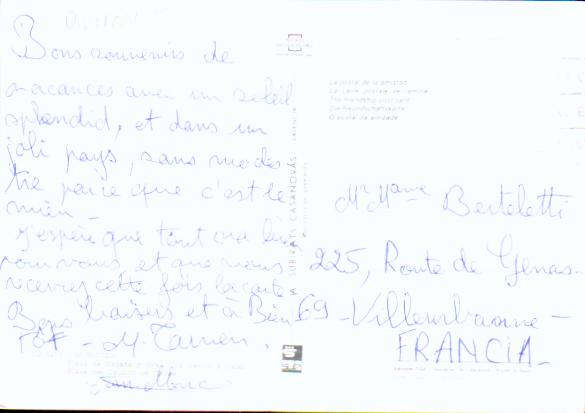 Bons souvenirs de
vacances avec un soleil
splendid, et dans un
joli pays, sans modes
tie parce que c'est le
mien -
j'espère que tout va bien
pour vous, et que vous
recevrez cette fois la carte
Bons baisers et à Bien
TOT - M.
La postal de la amistad
La carte postale de l'amitié
The friendship post card
Die Freundschaftskarte
O postal da amizade
SUBIRATS CASANOVAS
VALENCIA
Mr Mame Berteletti
225, Route de Genas-
69 - Villeurbanne -
FRANCIA -